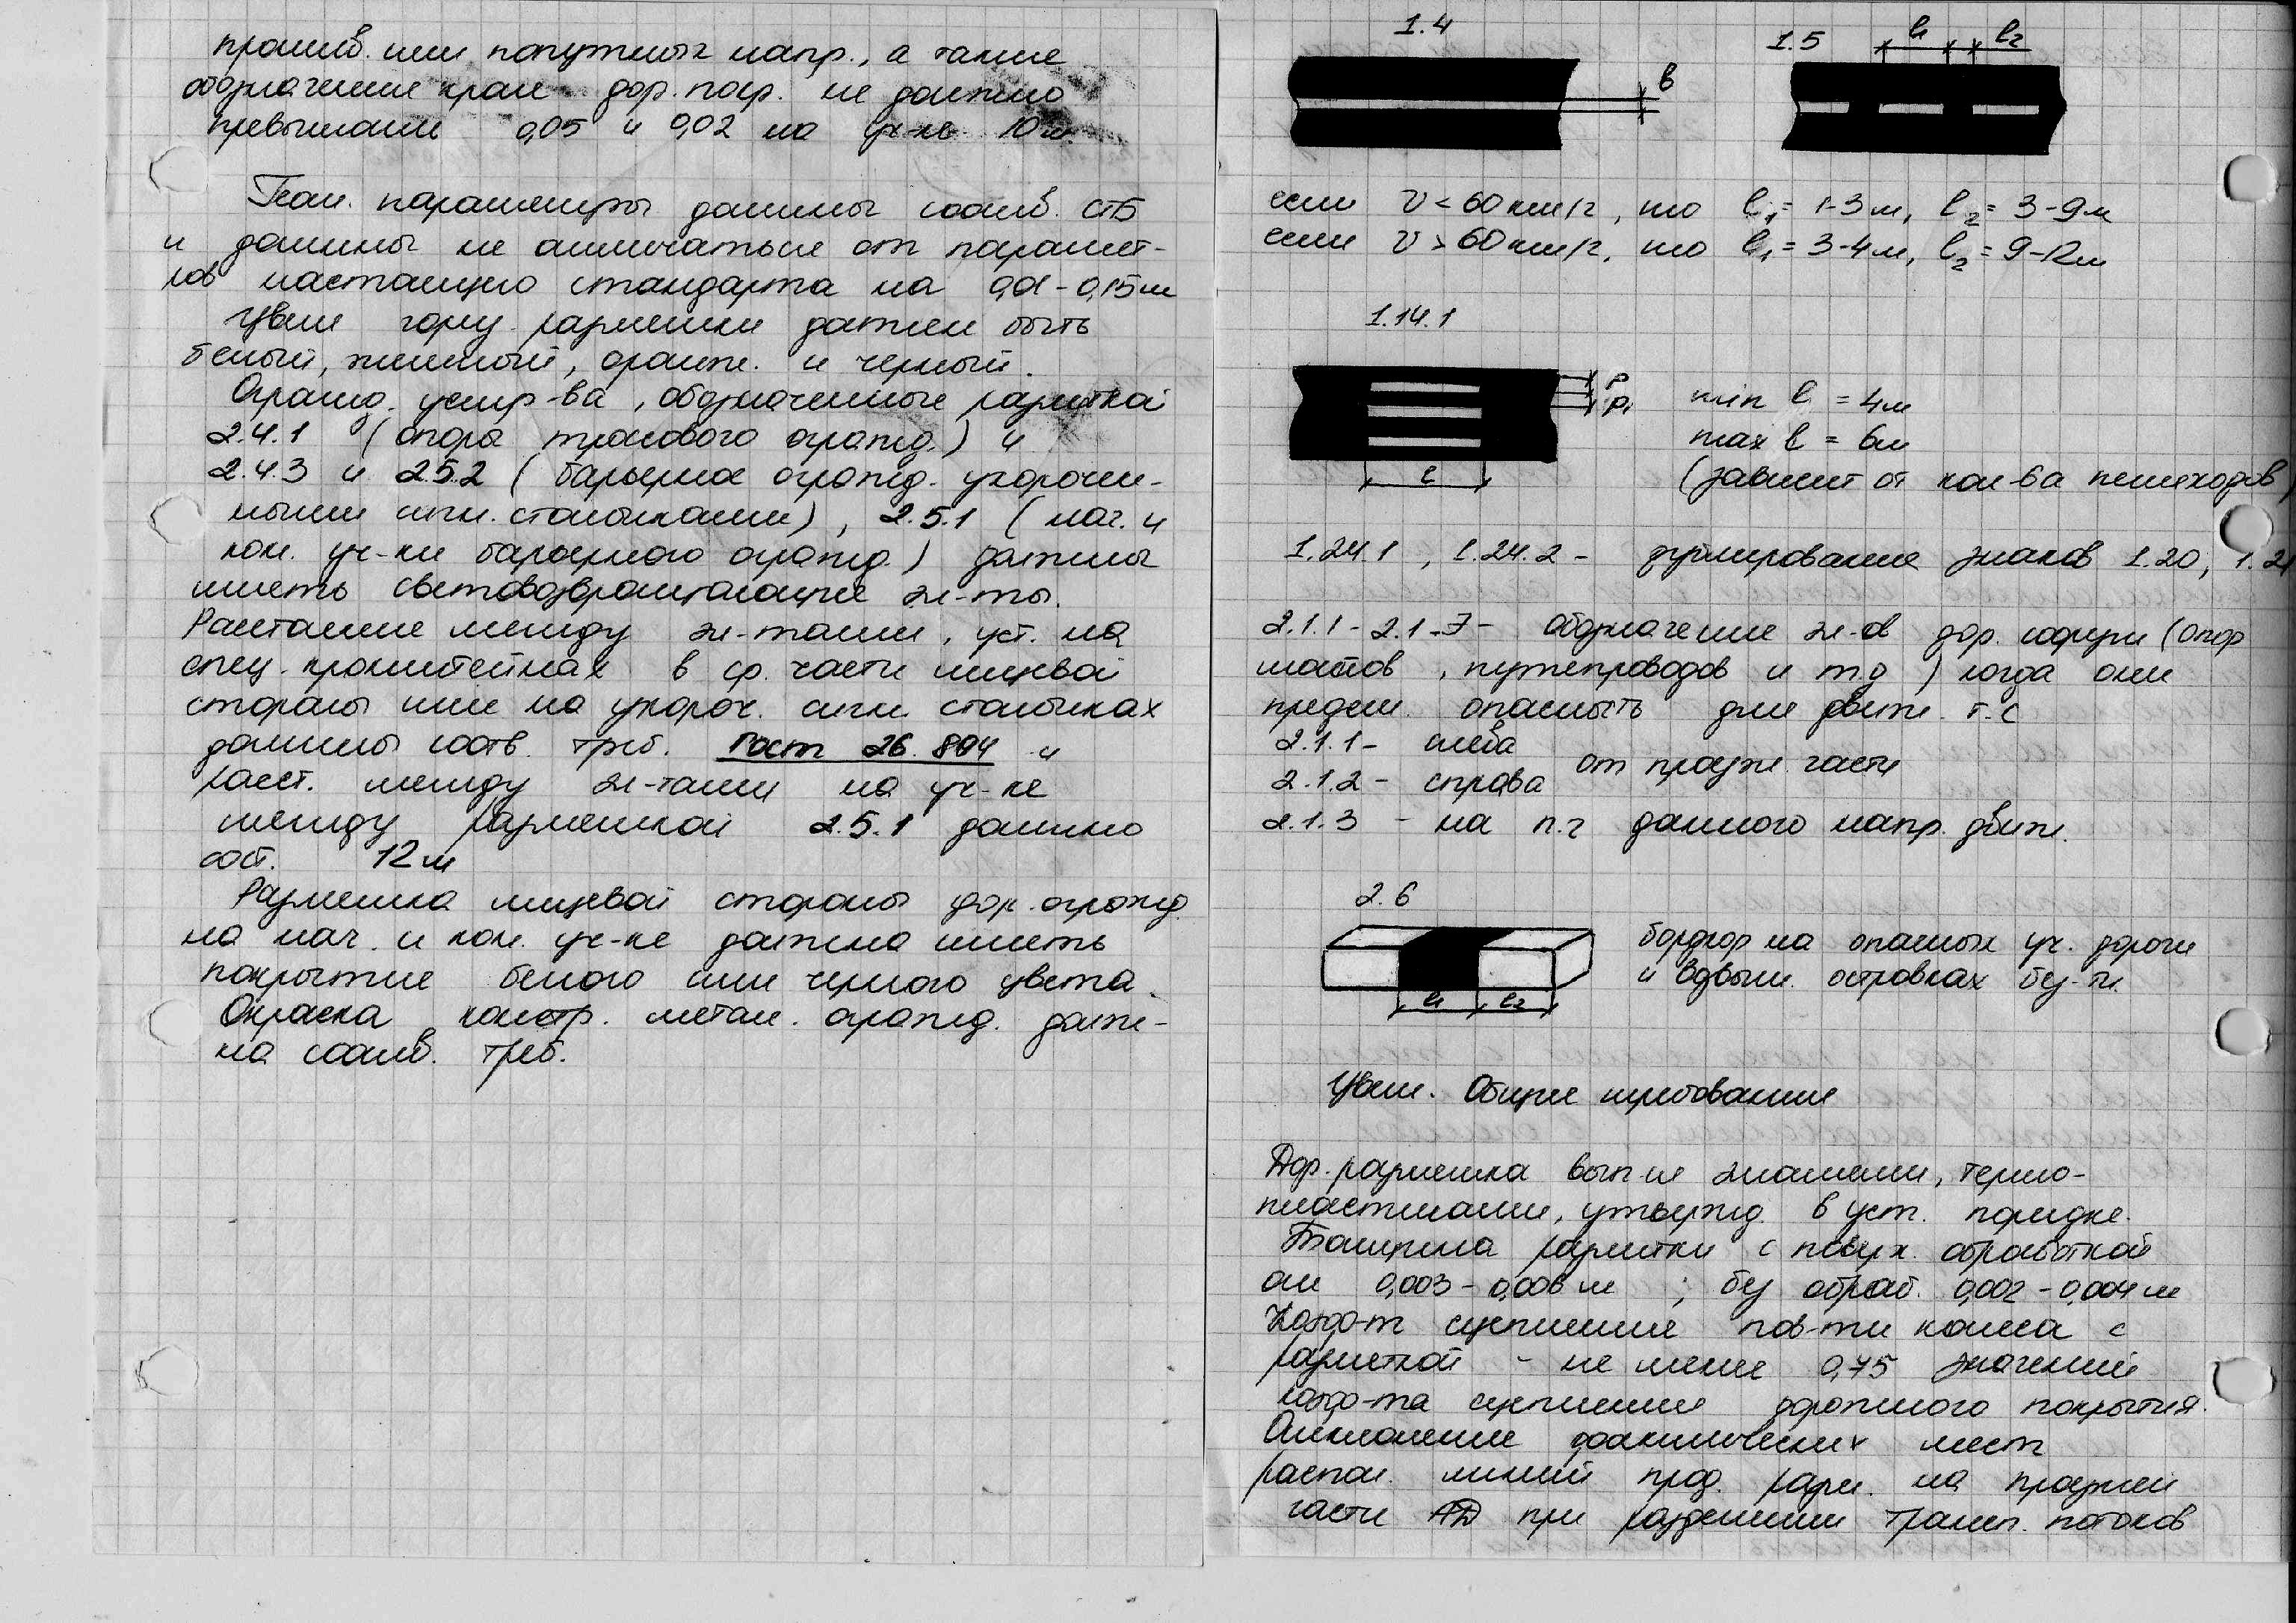 против. или попутных напр., а также
обозначение края дор. покр. не должно
превышать 0,05 и 0,02 на уч-ке 10 м.
Геом. параметры должны соотв. СТБ
и должны не отличаться от парамет-
ров настоящего стандарта на 0,01-0,15м
Цвет гориз. разметки должен быть
белый, желтый, оранж. и черный.
Огражд. устр-ва, обозначенные разметкой
2.4.1 (опора тросового огражд.) и
2.4.3 и 2.5.2 (барьерное огражд. укорочен-
ными сигн. столбиками), 2.5.1 (нач. и
кон. уч-ки барьерного огражд.) должны
иметь световозвращающие эл-ты.
Расстояние между эл-тами, уст. на
спец. кронштейнах в ср. части лицевой
стороны или на укороч. сигн. столбиках
должны соотв. треб. Гост 26.804 и
расст. между эл-тами на уч-ке
между разметкой 2.5.1 должно
сост. 12 м
Разметка лицевой стороны дор. огражд.
на нач. и кон. уч-ке должна иметь
покрытие белого или черного цвета.
Окраска констр. метал. огражд. долж-
на соотв. треб.
1.4
1.5 l1 l2
в
если v < 60 км/г, то l1 = 1-3 м, l2 = 3-9м
если v > 60 км/г, то l1 = 3-4 м, l2 = 9-12м
1.14.1
P
P1
min l = 4м
max l = 6м
(зависит от кол-ва пешеходов)
l
1.24.1, 1.24.2 - дублирование знаков 1.20, 1.21
2.1.1 - 2.1.3 - обозначение эл-ов дор. сооруж (опор
мостов, путепроводов и т.д) когда они
предст. опасность для движ. т.с
2.1.1 - слева
от проезж. части
2.1.2 - справа
2.1.3 - на п.ч данного напр. движ.
2.6
бордюр на опасных уч. дороги
и возвыш. островках без-ти.
l1 l2
Цвет. Общие требования
Дор. разметка вып-ся эмалями, термо-
пластиками, утвержд. в уст. порядке.
Толщина разметки с поверх. обработкой
от 0,003 - 0,006 м ; без обраб. 0,002 - 0,004 м
Коэфф-т сцепления пов-ти колеса с
разметкой - не менее 0,75 значений
коэфф-та сцепления дорожного покрытия.
Отклонение фактических мест
распол. линий прод. разм. на проезжей
части АД при разделении трансп. потоков